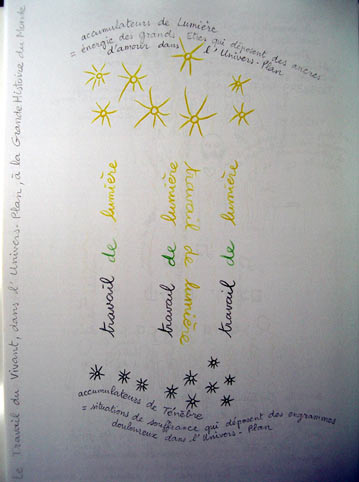 accumulateurs de Lumière
= énergie des grands Etres qui déposent des ancres
d'amour dans l'Univers-Plan
travail de lumière
travail de lumière
travail de lumière
travail de lumière
accumulateurs de Ténèbre
= situations de souffrance qui déposent des engrammes
douloureux dans l'Univers-Plan
Le Travail du Vivant, dans l'Univers-Plan, à la Grande Histoire du Monde